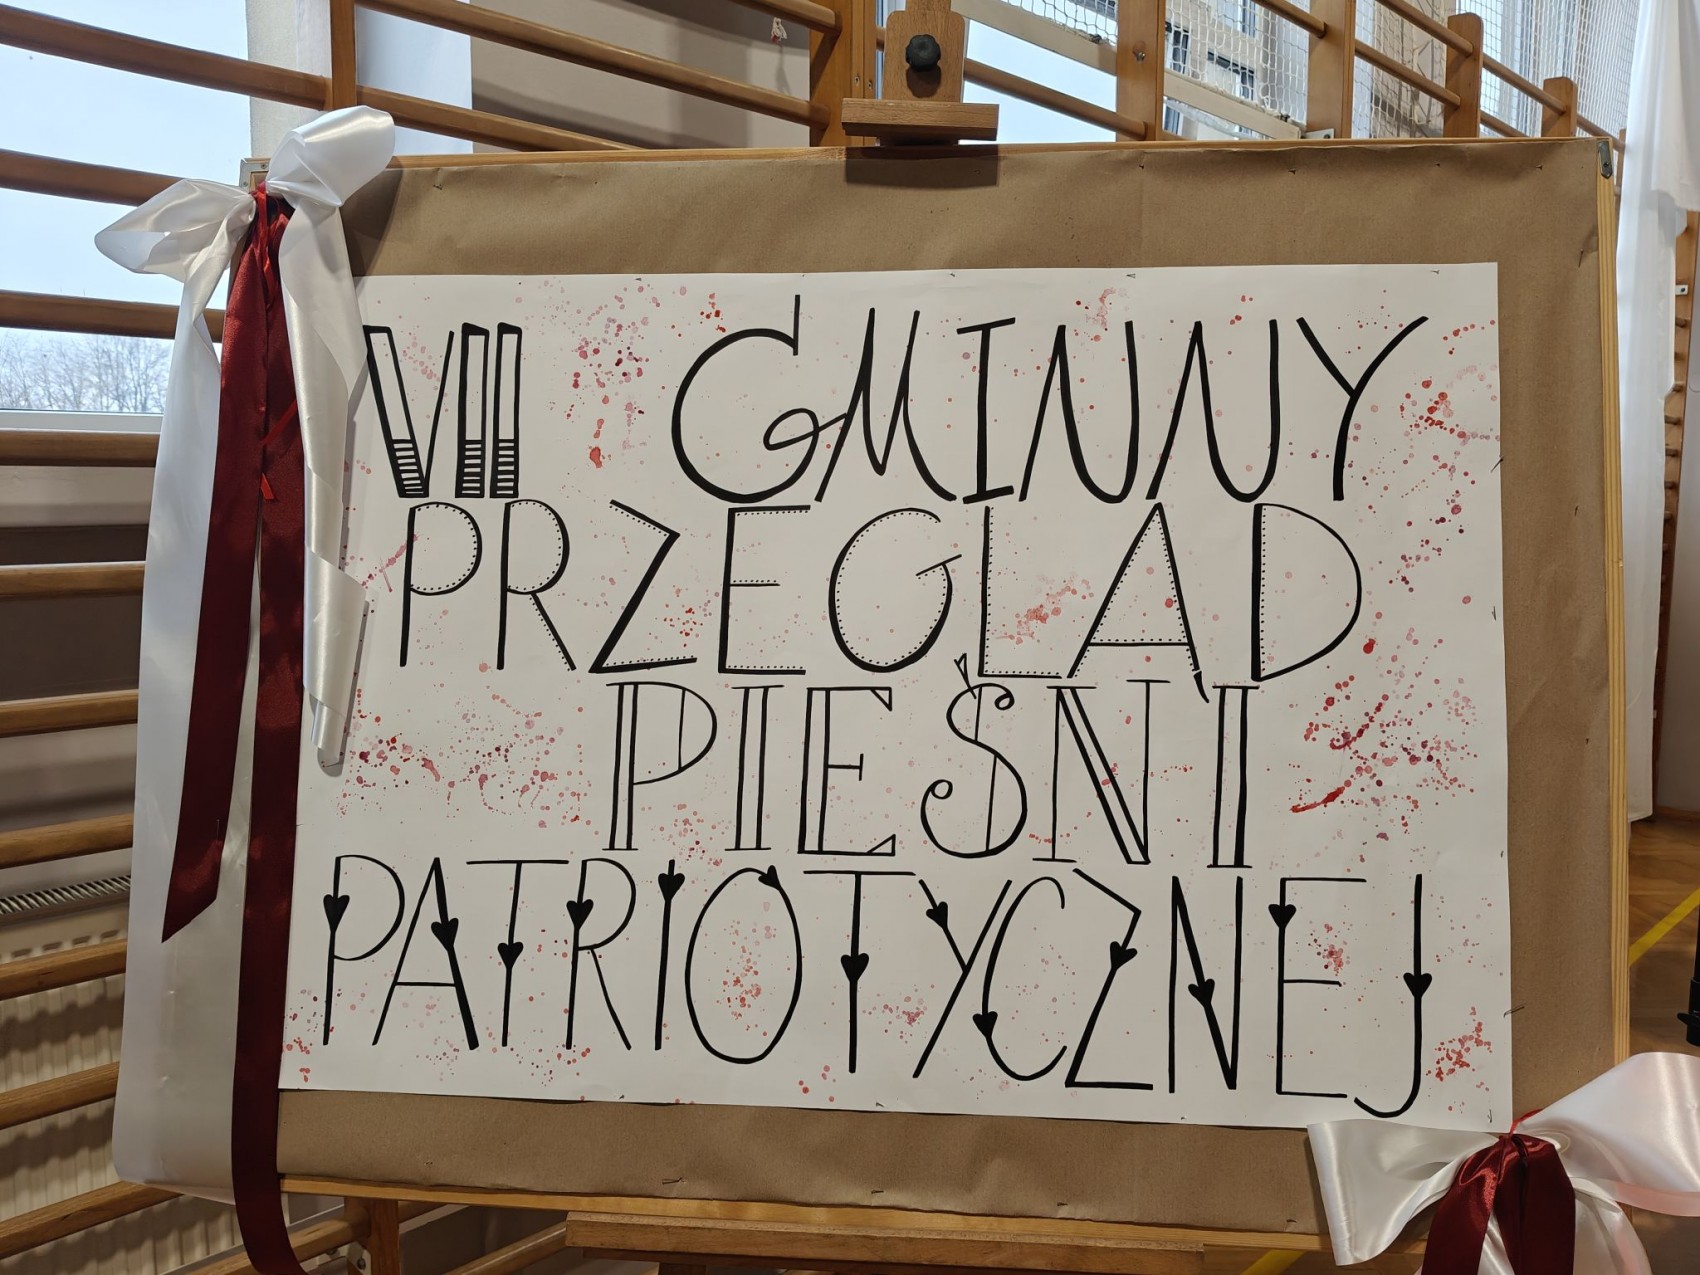 VII GMINNY
PRZEGLĄD
PIEŚNI
PATRIOTYCZNEJ